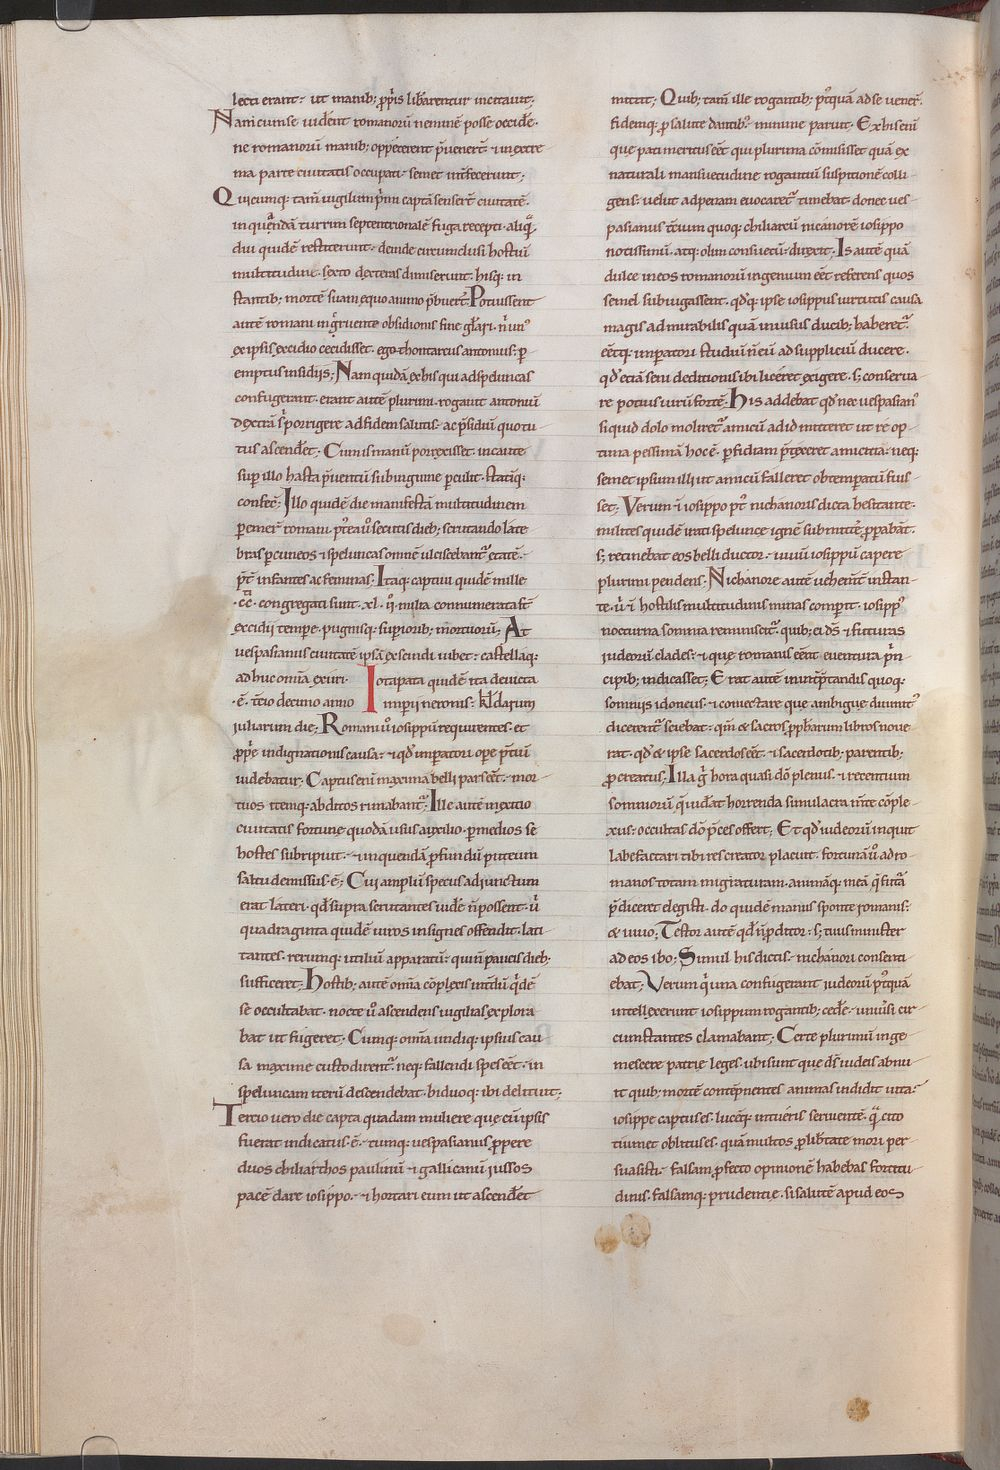 lecti erant· ut manib; p̄priis lib̄arentur incitauit;
Nam cum se uider̄ent romanorū neminē posse occidē·
ne romanorū manib; oppeterent p̄uener̄t· & in extre
ma parte ciuitatis occupati· semet int̄fecerunt;
Quicumq; tam̄ uigilium p̄mi captā senser̄t ciuitatē·
in quendā turrim septentrionalē fuga recepti· aliq̄
diu quidē restiterunt· deinde circumclusi hostiū
multitudine· sero dexteras dimiserunt· hisq; in
stantib; mortē suam equo animo p̄buer̄t; Potuissent
autē romani ingruente obsidionis fine gl̄ari· n̄ un᾿
ex ipsis excidio cecidisset· ego thontarcus antonius· p̄
emptus insidiis; Nam quidā ex his qui ad speluncas
confugerant· erant autē plurimi· rogant antoniū
dextrā s̄ porrigere ad fidem salutis· ac p̄sidiū quo tu
tus ascender̄et; Cum is manū porrexisset incaute
sup̄ illo hasta p̄uentū sub inguine perculit· statīq;
confec̄; Illo quidē die manifestā multitudinem
p̄emer̄ romani· pt̄ea ū secutis dieb; scrutando late
bras per cuneos & speluncas omnē ulciscebant᾿ etatē·
p̄t̄ infantes ac feminas; Itaq; captiui quidē mille
·cc̄· congregati sunt· xl· ū· milia connumerata st̄
excidii tempe· pugnisq; sup̄iorib; mortuorū; At
uespasianus ciuitatē ipsā exscindi iubet· castellaq;
adhuc om̄ia exuri· Iotapata quidē ita deuicta
·ē· t̄cio decimo anno imperii neronis· kl̄darum
iuliarum die; Romani ū iosippū requirentes· et
p̄prie indignationis causa· & qđ imperatori ope p̄tiū
uidebatur; Captus enī maxima belli pars eēt· mor
tuos itemq; abditos rimabant᾿; Ille autē in excidio
ciuitatis fortune quodā usus auxilio· p̄ medios se
hostes subripuit· & in quendā p̄fundū puteum
saltu demissus·ē; Cui amplū specus adiunctum
erat lateri· qđ supra scrutantes uidē n̄ possent· ū
quadraginta quidē uiros insignes offendit· lati
tantes· rerumq; utiliū apparatū· qui n̄ paucis dieb;
sufficeret; Hostib; autē om̄ia cōplexis int̄diū q̄dē
se occultabat· nocte ū ascendens uigilias explora
bat ut fugeret; Cumq; om̄ia undiq; ipsius cau
sa maxime custodirent᾿· neq; fallendi spes eēt· in
speluncam iterū descendebat· biduoq; ibi delituit;
Tercio uero die capta quadam muliere que cū ipsis
fuerat indicatus·ē· tumq; uespasianus p̄pere
duos chiliarchos paulinū & gallicanū iussos
pacē dare iosippo· & hortari eum ut ascender̄et
mittit; Quib; tam̄ ille rogantib; p̄tquā ad se uener̄·
fidemq; p̄ salute dantib᾿· minime paruit· Ex his enī
que pati meritus eēt qui plurima cōmisisset quā ex
naturali mansuetudine rogantiū suspitionē colli
gens· uelut ad penam euocaret᾿ timebat· donec ues
pasianus t̄cium quoq; chiliarcū nicanorē iosippo
notissimū· atq; olim consuetū· direxit; Is autē quā
dulce in eos romanorū ingenium eēt referens quos
semel subiugassent· qđq; ipse iosippus uirtutis causa
magis admirabilis quā inuisus ducib; haberet᾿·
eētq; imperatori studiū n̄ eū ad suppliciū ducere·
qđ etiā seni deditionis ibi liceret exigere· s; conserua
re potius uirū fortē; His addebat qđ nec uespasian᾿
si quid dolo moliret᾿ amicū ad id mitteret ut rē op
tima pessimā hoc ē· perfidiam p̄texeret amicitia· neq;
semet ipsum illi ut amicū falleret obtemperatū fuis
set; Verum & iosippo pt̄ nichanoris dicta hesitante·
milites quidē irati speluncę ignē submittē p̄parabāt·
s; retinebat eos belli ductor· uiuū iosippū capere
plurimi pendens; Nichanore autē uehement̄ instan
te· ū & hostilis multitudinis minas comperit· iosipp᾿
nocturna somnia reminiscit᾿· quib; ei d̄s & futuras
iudeorū clades· & que romanis eēnt euentura p̄n
cipib; indicasset; Erat autē in int̄p̄tandis quoq;
somniis idoneus· & coniectare que ambigue diuinit᾿
dicerent᾿ sciebat· qm̄ & sacros p̄phārum libros noue
rat· qđ & ipse sacerdos eēt· & sacerdotib; parentib;
p̄creatus; Illa ḡ hora quasi dō plenus· & recentium
somniorū q̄ uiderat horrenda simulacra m̄te cōple
xus· occultas dō p̄ces offert; Et qđ iudeorū inquit
labefactari tibi res creator placuit· fortunā ū ad ro
manos totam migraturam· animāq; meā q̄ futura
p̄diceret degisti· do quidē manus sponte romanis·
& uiuo; Testor autē qđ n̄ p̄ditor· s; tuus minister
ad eos ibo; Simul his dictis· nichanori consenti
ebat; Verum q̄ una confugerant iudeorū p̄tquā
intellexerunt iosippum rogantib; cedē· uniūsi cir
cumstantes clamabant; Certe plurimū inge
mescere patrie leges· ubi sunt que d̄s iudeis abnu
it quib; mortē contēpnentes animas indidit uita·
iosippe captus es· lucēq; intueris seruientē· q̄ cito
tui met oblitus es· quā multos p̄ lib̄tate mori per
suasisti· falsam p̄fecto opinionē habebas fortitu
dinis· falsamq; prudentię· si salutē apud eos